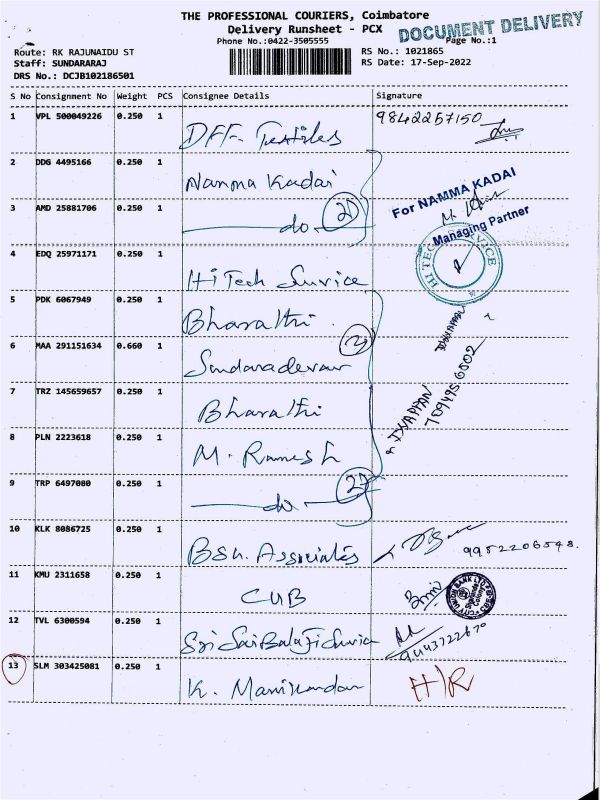 THE PROFESSIONAL COURIERS, Coimbatore
Delivery Runsheet - PCX
DOCUMENT DELIVERY
Phone No.:0422-3505555
Page No.:1
Route: RK RAJUNAIDU ST
RS No.: 1021865
Staff: SUNDARARAJ
RS Date: 17-Sep-2022
DRS No.: DCJB102186501
S No Consignment No Weight PCS Consignee Details Signature
1 VPL 500049226 0.250 1 DFF. Textiles 9842257150
2 DDG 4495166 0.250 1 Namma Kadai
For NAMMA KADAI
Managing Partner
3 AMD 25881706 0.250 1 do
4 EDQ 25971171 0.250 1 Hi Tech Survice
HI TECH SERVICE
5 PDK 6067949 0.250 1 Bharathi
6 MAA 291151634 0.660 1 Sundaradevan
7 TRZ 145659657 0.250 1 Bharathi
IYYAPPAN
8 PLN 2223618 0.250 1 M. Ramesh
9 TRP 6497080 0.250 1 do 27
10 KLK 8086725 0.250 1 Bsn. Associates 9952206548.
11 KMU 2311658 0.250 1 CUB
CITY UNION BANK LTD
12 TVL 6300594 0.250 1 Sri Sai Balaji Survice 9443722670
13 SLM 303425081 0.250 1 K. Manikandan H/R